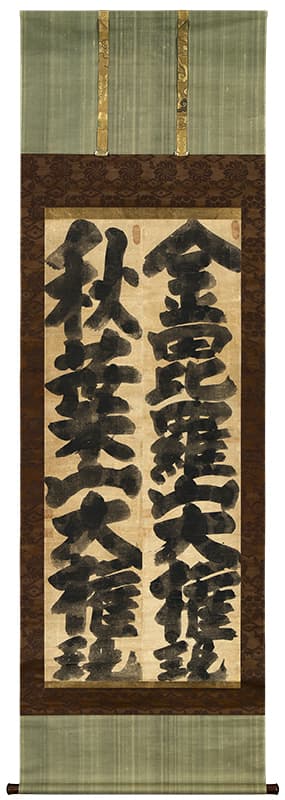 金毘羅山大権現
秋葉山大権現